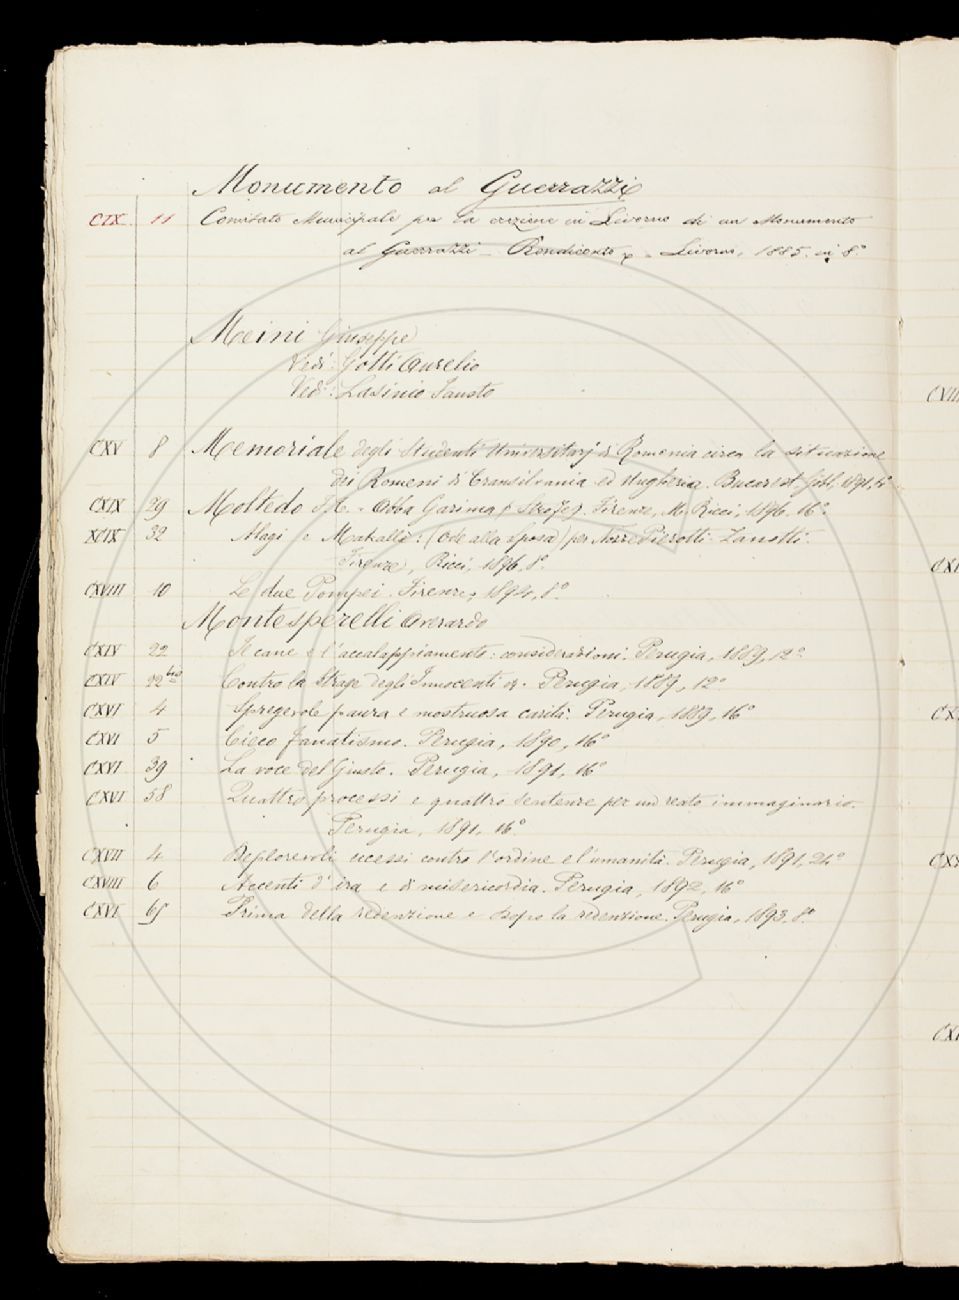 Monumento al Guerrazzi
CIX. 11 Comitato Municipale per la erezione in Livorno di un Monumento
al Guerrazzi - Rendiconto - Livorno, 1885. in 8.°
Meini Giuseppe
Vedi: Gotti Aurelio
Vedi: Lasinio Fausto
CXV 8 Memoriale degli Studenti Universitarj di Romenia circa la situazione
dei Romeni di Transilvania ed Ungheria. Bucarest, 1891, 4°
CXIX 29 Moltedo F. T. - Abba Garima (Strofe). Firenze, M. Ricci, 1896. 16°.
XCIX 32 Alagi e Makallè: (Ode alla Sposa) per Nozze Pierotti-Zanotti.
Firenze, Ricci, 1896. 8°.
CXVIII 10 Le due Pompei. Firenze, 1894, 8°.
Montesperelli Averardo
CXIV 22 Il cane e l'accalappiamento: considerazioni. Perugia, 1889, 12°.
CXIV 22 bis Contro la Strage degli Innocenti. Perugia, 1887, 12°
CXVI 4 Spregevole paura e mostruosa carità. Perugia, 1889, 16°
CXVI 5 Cieco fanatismo. Perugia, 1890, 16°
CXVI 39 La voce del Giusto. Perugia, 1891, 16°
CXVI 58 Quattro processi e quattro sentenze per un reato immaginario.
Perugia, 1891. 16°.
CXVII 4 Deplorevoli eccessi contro l'ordine e l'umanità. Perugia, 1891, 24°
CXVIII 6 Accenti d'ira e di misericordia. Perugia, 1892, 16°
CXVI 65 Prima della redenzione e dopo la redenzione. Perugia, 1893. 8°.